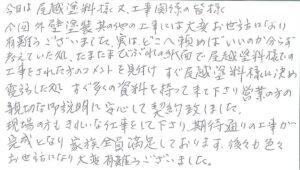 今日は尾越塗料様又、工事関係の皆様
今回外壁塗装其の他の工事には大変お世話になり
有難うございました。実はどこへ頼めばいいのか分らず
考えていた処、たまたまぴぷれの紙面で尾越塗料様での
工事をされた方のコメントを見付けすぐ尾越塗料様に決め
電話した処すぐ多くの資料を持って来て下さり営業の方の
親切な御説明に安心して契約致しました。
現場の方もきれいな仕事をして下さり、期待通りの工事が
完成となり家族全員満足しております。後々も色々
お世話になり大変有難うございました。